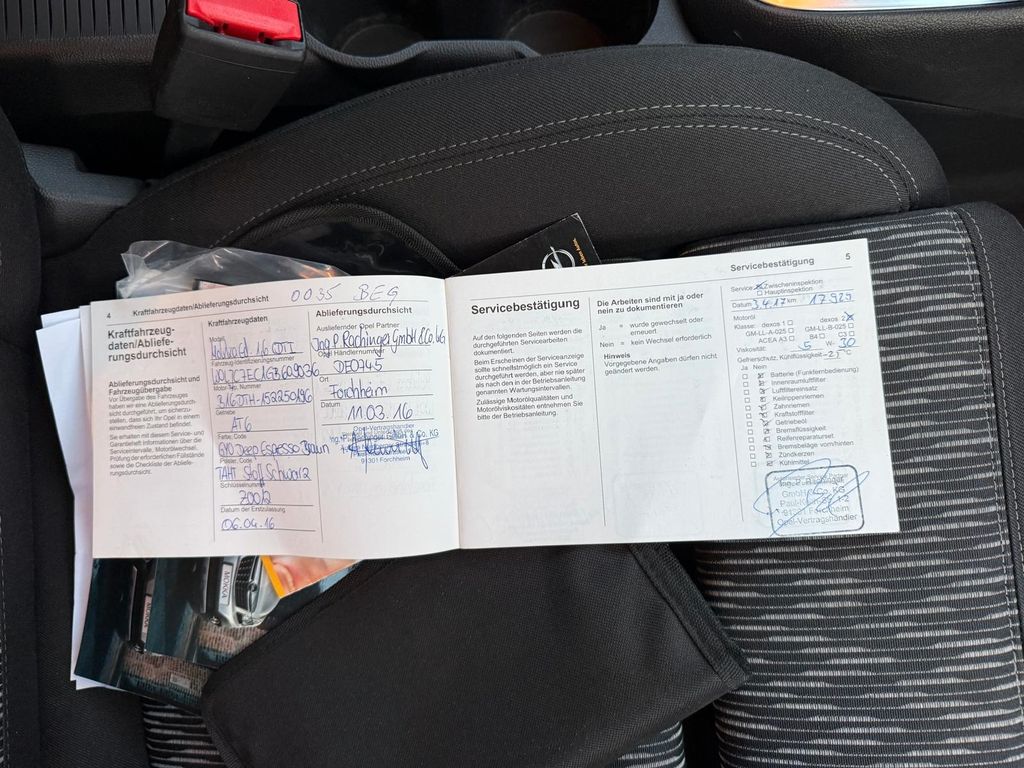 4 Kraftfahrzeugdaten/Ablieferungsdurchsicht
0035 BEG
Kraftfahrzeug-
daten/Abliefe-
rungsdurchsicht
Ablieferungsdurchsicht und
Fahrzeugübergabe
Vor Übergabe des Fahrzeuges
haben wir eine Ablieferungsdurch-
sicht durchgeführt, um sicherzu-
stellen, dass sich Ihr Opel in einem
einwandfreien Zustand befindet.
Sie erhalten mit diesem Service- und
Garantieheft Informationen über die
Serviceintervalle, Motorölwechsel,
Prüfung der erforderlichen Füllstände
sowie die Checkliste der Abliefe-
rungsdurchsicht.
Kraftfahrzeugdaten
Modell
1.6 CDTI
Fahrzeug-Identifizierungsnummer
Motor-Typ, Nummer
Getriebe
AT6
Farbe, Code
GYO Deep Espresso Braun
Polster, Code
TAHT Stoff Schwarz
Schlüsselnummer
Datum der Erstzulassung
06.04.16
Ablieferungsdurchsicht
Ausliefernder Opel Partner
Ing. P. Rachinger GmbH & Co. KG
Opel Händlernummer
DE0745
Ort
Forchheim
Datum
11.03.16
Opel-Vertragshändler
91301 Forchheim
Servicebestätigung
Auf den folgenden Seiten werden die
durchgeführten Servicearbeiten
dokumentiert.
Beim Erscheinen der Serviceanzeige
sollte schnellstmöglich ein Service
durchgeführt werden, aber nie später
als nach den in der Betriebsanleitung
genannten Wartungsintervallen.
Zulässige Motorölqualitäten und
Motorölviskositäten entnehmen Sie
bitte der Betriebsanleitung.
Die Arbeiten sind mit ja oder
nein zu dokumentieren
Ja = wurde gewechselt oder
erneuert.
Nein = kein Wechsel erforderlich
Hinweis
Vorgegebene Angaben dürfen nicht
geändert werden.
Servicebestätigung 5
Service: Zwischeninspektion
Hauptinspektion
Datum 3.4.17 km 17.929
Motoröl
Klasse: dexos 1 dexos 2
GM-LL-A-025 GM-LL-B-025
ACEA A3 B4 C3
Viskosität: 5 W- 30
Gefrierschutz, Kühlflüssigkeit -25 °C
Ja Nein
Batterie (Funkfernbedienung)
Innenraumluftfilter
Luftfiltereinsatz
Keilrippenriemen
Zahnriemen
Kraftstofffilter
Getriebeöl
Bremsflüssigkeit
Reifenreparaturset
Bremsbeläge vorn/hinten
Zündkerzen
Kühlmittel
GmbH & Co. KG
91301 Forchheim
Opel-Vertragshändler
MOKKA